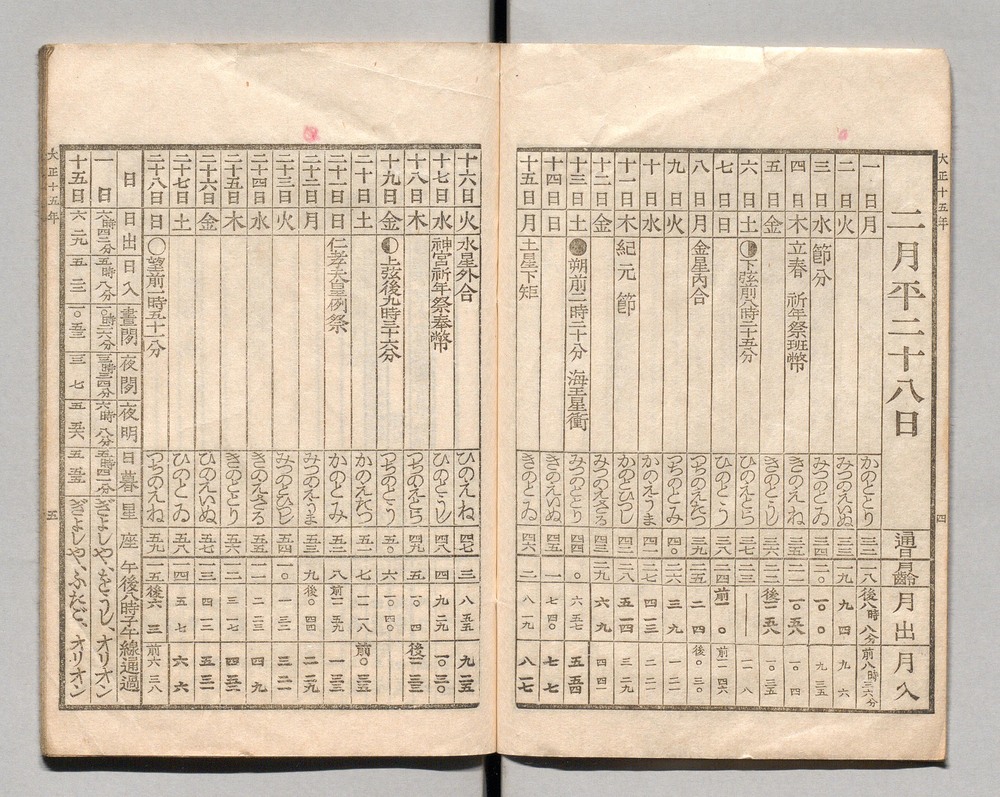 大正十五年
四
二月平二十八日
通日
月齢
月出
月入
一日月 かのとのとり 三二 一八 後八時八分 前八時三六分
二日火 みづのえいぬ 三三 一九 九 四 九 六
三日水 節分 みづのとゐ 三四 二〇 一〇 〇 九 三五
四日木 立春 祈年祭班幣 きのえね 三五 二一 一〇 五八 一〇 四
五日金 きのとうし 三六 二二 後一一 五八 一〇 三五
六日土 下弦前八時二十五分 ひのえとら 三七 二三 — 一一 八
七日日 ひのとう 三八 二四 前一 〇 前一一 四六
八日月 金星内合 つちのえたつ 三九 二五 二 四 後〇 三〇
九日火 つちのとみ 四〇 二六 三 九
十日水 かのえうま 四一 二七 四 一三
十一日木 紀元節 かのとひつじ 四二 二八 五 一四 三 二九
十二日金 みづのえさる 四三 二九 六 九 四 四一
十三日土 朔前二時二十分 海王星衝 みづのととり 四四 〇 六 五七 五 五四
十四日日 きのえいぬ 四五 一 七 四〇 七 七
十五日月 土星下矩 きのとゐ 四六 二 八 一九 八 一七
十六日火 水星外合 ひのえね 四七 三 八 五五 九 二五
十七日水 神宮祈年祭奉幣 ひのとうし 四八 四 九 二九 一〇 三〇
十八日木 つちのえとら 四九 五 一〇 四 後一一 三三
十九日金 上弦後九時三十六分 つちのとう 五〇 六 一〇 四〇 —
二十日土 かのえたつ 五一 七 一一 一八 前〇 三五
二十一日日 仁孝天皇例祭 かのとみ 五二 八 前一一 五九 一 三三
二十二日月 みづのえうま 五三 九 後〇 四四 二 二九
二十三日火 みづのとひつじ 五四 一〇 一 三二 三 二一
二十四日水 きのえさる 五五 一一 二 二三 四 九
二十五日木 きのととり 五六 一二 三 一七 四 五二
二十六日金 ひのえいぬ 五七 一三 四 一二 五 三一
二十七日土 ひのとゐ 五八 一四 五 七 六 六
二十八日日 望前一時五十一分 つちのえね 五九 一五 後六 三 前六 三八
日 日出 日入 昼間 夜間 夜明 日暮 星座 午後八時子午線通過
一日 六時四二分 五時八分 一〇時二六分 一三時三四分 六時八分 五時四一分 ぎよしや、をうし、オリオン
十五日 六 二九 五 二二 一〇 五三 一三 七 五 五六 五 五五 ぎよしや、ふたご、オリオン
大正十五年
五